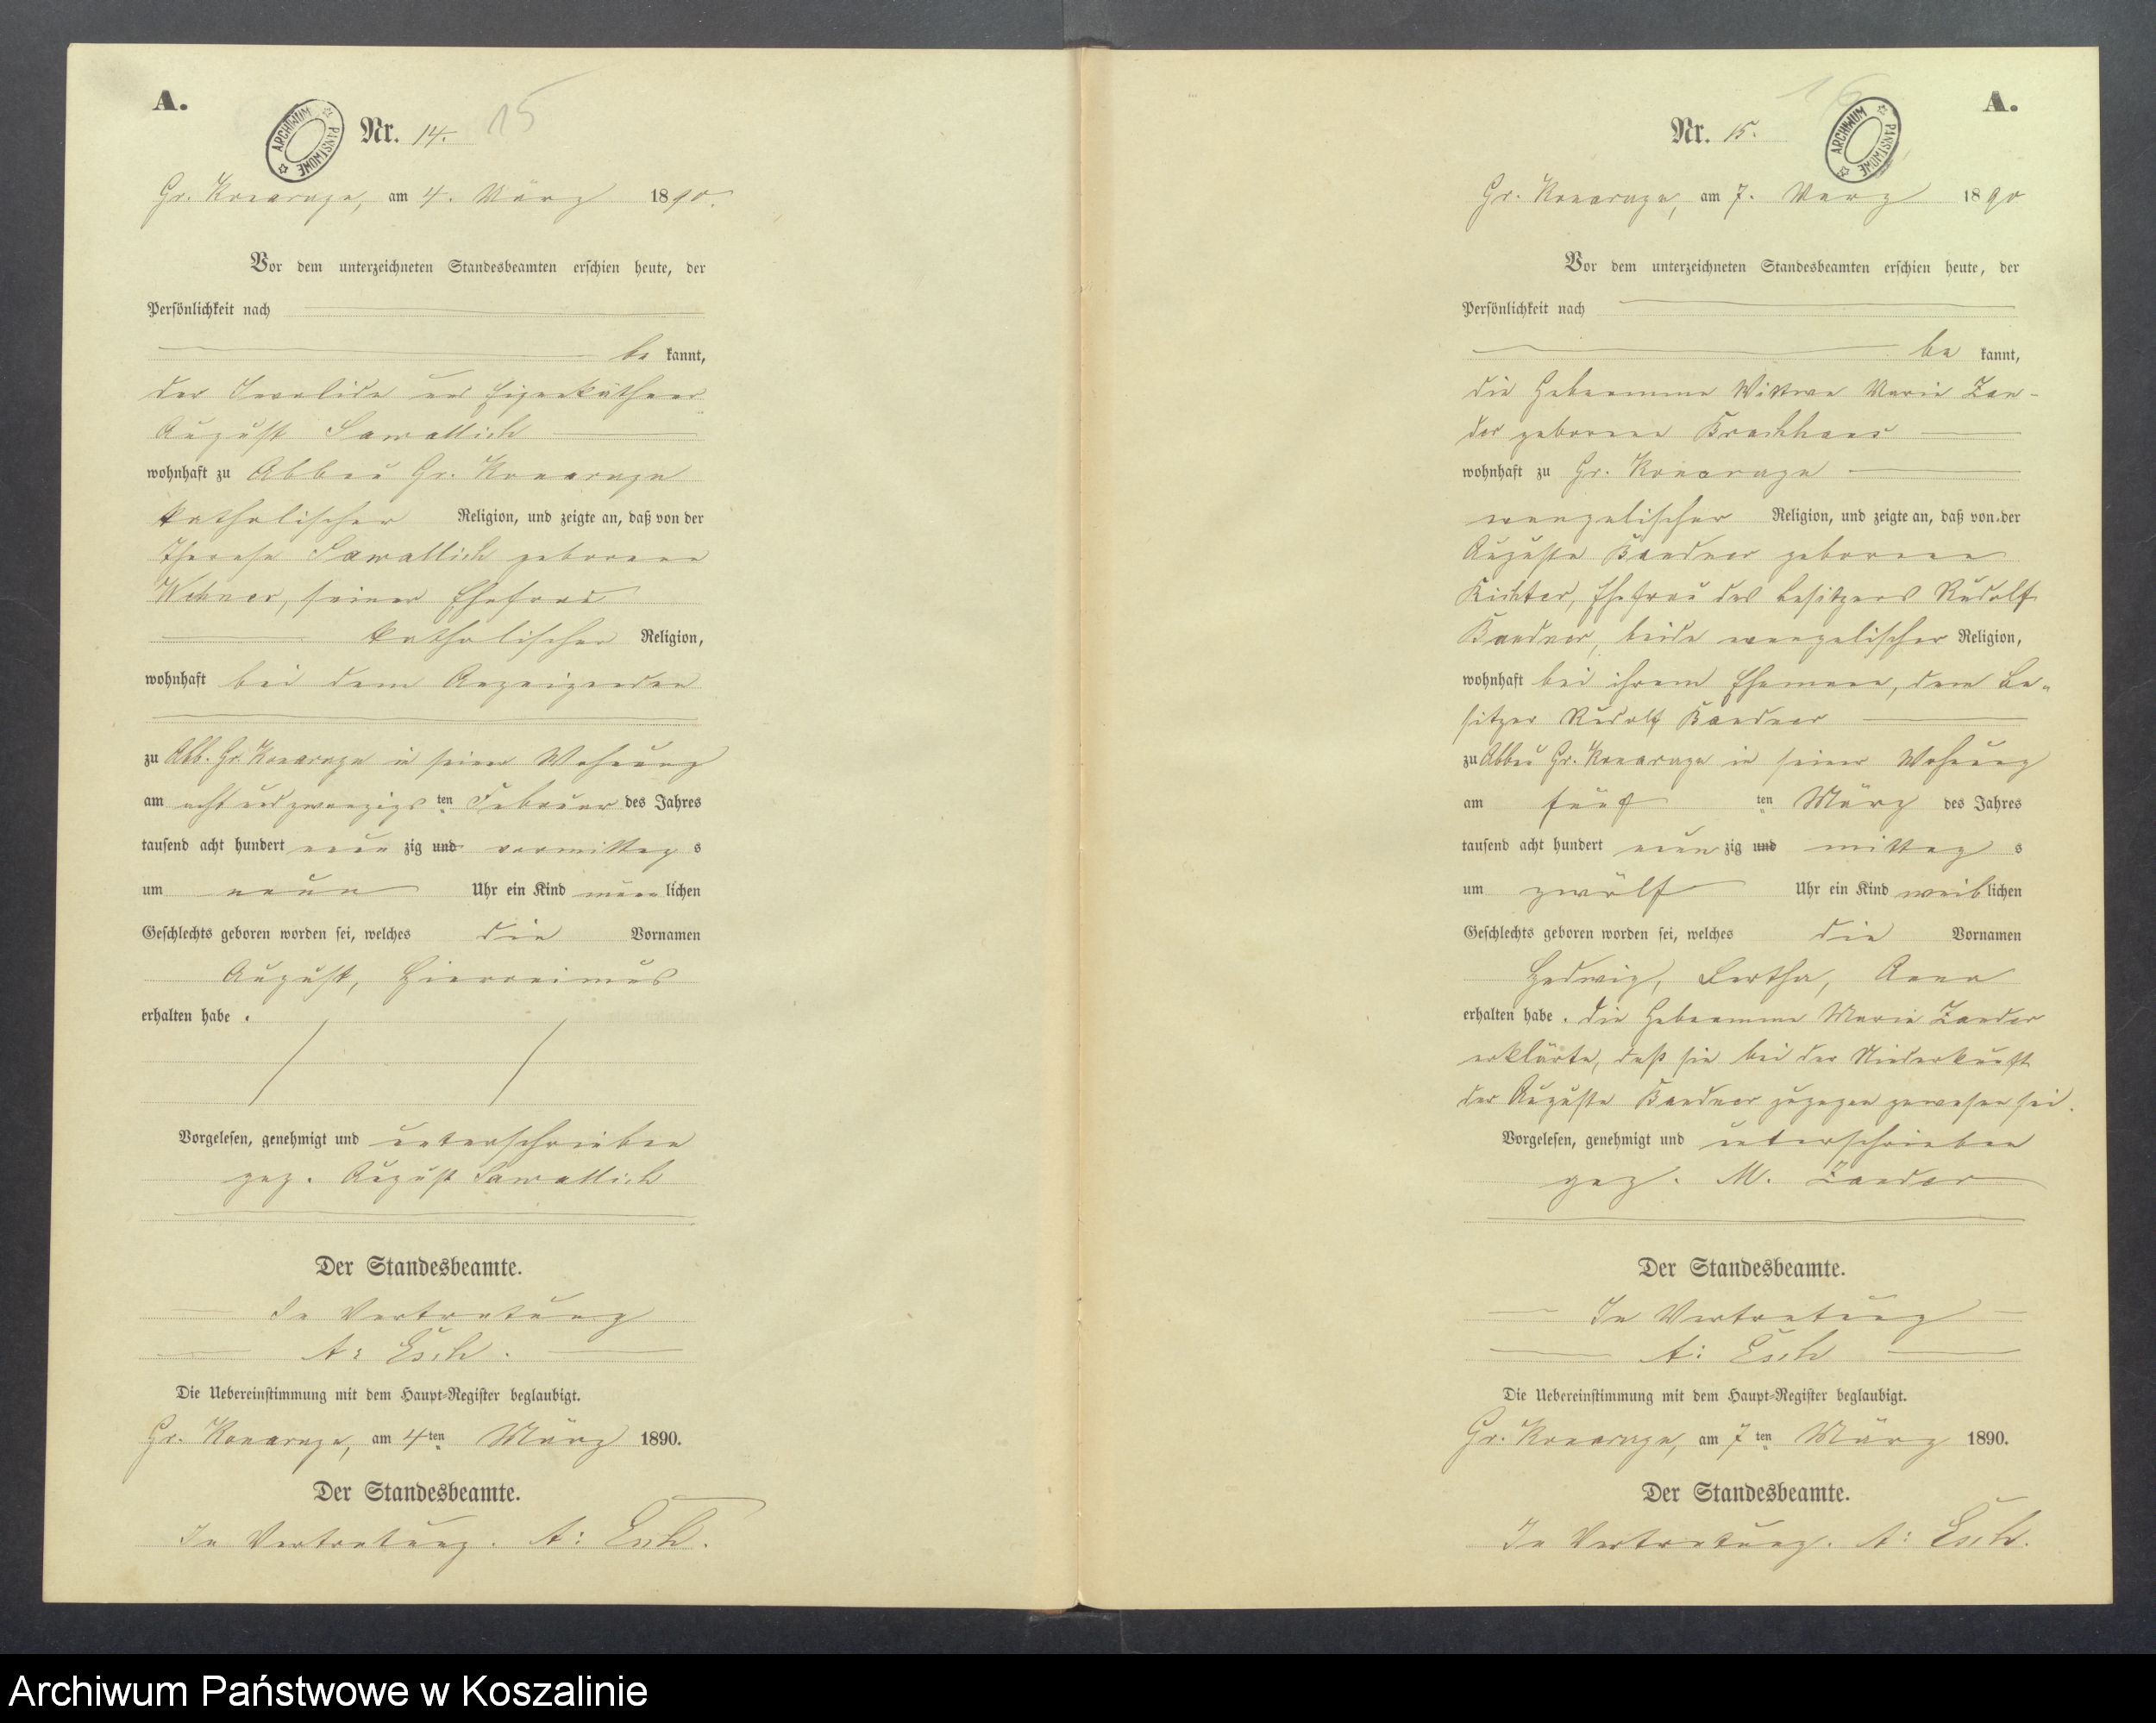 A.
ARCHIWUM PAŃSTWOWE
Nr. 14.
15
Gr. Konarzyn, am 4. März 1890.
Vor dem unterzeichneten Standesbeamten erschien heute, der
Persönlichkeit nach
be kannt,
der Invalide und Eigenkäthner
August Sawallich
wohnhaft zu Abbau Gr. Konarzyn
katholischer Religion, und zeigte an, daß von der
Therese Sawallich geborene
seiner Ehefrau
katholischer Religion,
wohnhaft bei dem Anzeigenden
zu Abb. Gr. Konarzyn in seiner Wohnung
am acht und zwanzigs ten Februar des Jahres
tausend acht hundert neun zig und vormittag s
um neun Uhr ein Kind männ lichen
Geschlechts geboren worden sei, welches die Vornamen
August, Hieronimus
erhalten habe.
Vorgelesen, genehmigt und unterschrieben
gez. August Sawallich
Der Standesbeamte.
In Vertretung
A: Esch.
Die Uebereinstimmung mit dem Haupt-Register beglaubigt.
Gr. Konarzyn, am 4ten März 1890.
Der Standesbeamte.
In Vertretung. A: Esch.
A.
16
ARCHIWUM PAŃSTWOWE
Nr. 15.
Gr. Konarzyn, am 7. März 1890
Vor dem unterzeichneten Standesbeamten erschien heute, der
Persönlichkeit nach
be kannt,
die Hebeamme Wittwe Marie Zan-
der geborene
wohnhaft zu Gr. Konarzyn
evangelischer Religion, und zeigte an, daß von der
Auguste geborene
Richter, Ehefrau des Besitzers Rudolf
beide evangelischer Religion,
wohnhaft bei ihrem Ehemann, dem Be-
sitzer Rudolf
zu Abbau Gr. Konarzyn in seiner Wohnung
am fünf ten März des Jahres
tausend acht hundert neun zig und mittag s
um zwölf Uhr ein Kind weib lichen
Geschlechts geboren worden sei, welches die Vornamen
Hedwig, Bertha, Anna
erhalten habe. Die Hebeamme Marie Zander
erklärte, daß sie bei der Niederkunft
der Auguste zugegen gewesen sei.
Vorgelesen, genehmigt und unterschrieben
gez. M. Zander
Der Standesbeamte.
In Vertretung
A: Esch
Die Uebereinstimmung mit dem Haupt-Register beglaubigt.
Gr. Konarzyn, am 7ten März 1890.
Der Standesbeamte.
In Vertretung. A: Esch.
Archiwum Państwowe w Koszalinie